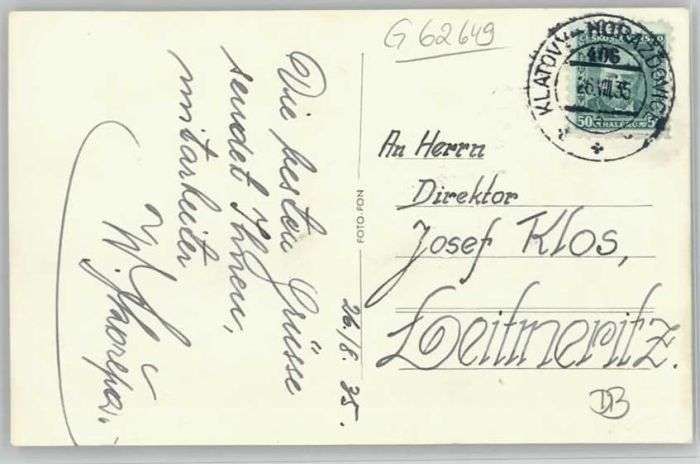 G 62649
Die besten Grüsse
sendet Ihnen,
mitarbeiter
26./8. 35.
FOTO-FON
KLATOVY - HORAŽĎOVICE
406
26.VIII.35
ČESKOSLOVENSKO
50 HALÉŘŮ 50
An Herrn
Direktor
Josef Klos,
Leitmeritz.
DB